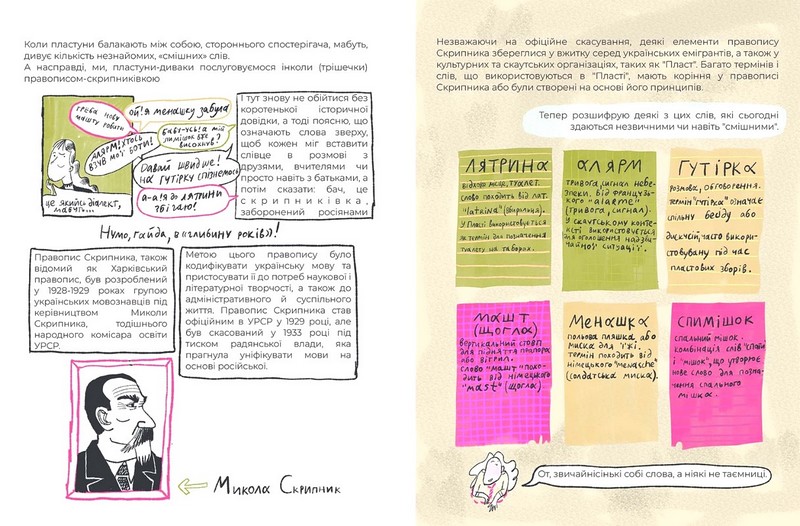 Коли пластуни балакають між собою, стороннього спостерігача, мабуть,
дивує кількість незнайомих, «смішних» слів.
А насправді, ми, пластуни-диваки послуговуємося інколи (трішечки)
правописом-скрипниківкою
ТРЕБА НОВУ
МАШТУ РОБИТИ
ОЙ! Я МЕНАШКУ ЗАБУЛА
АЛЯРМ! ХТОСЬ
ВЗУВ МОЇ БОТИ!
ДАВАЙ ШВИДШЕ!
НА ГУТІРКУ СПІЗНЮЄМОСЬ
А-А-А! Я ДО ЛЯТРИНИ
ЗБІГАЮ!
ЦЕ ЯКИЙСЬ ДІАЛЕКТ,
МАБУТЬ...
І тут знову не обійтися без
коротенької історичної
довідки, а тоді поясню, що
означають слова зверху,
щоб кожен міг вставити
слівце в розмові з
друзями, вчителями чи
просто навіть з батьками, а
потім сказати: бач, це
скрипниківка,
заборонений росіянами
Нумо, гайда, в «глибину років»!
Правопис Скрипника, також
відомий як Харківський
правопис, був розроблений
у 1928-1929 роках групою
українських мовознавців під
керівництвом Миколи
Скрипника, тодішнього
народного комісара освіти
УРСР.
Метою цього правопису було
кодифікувати українську мову та
пристосувати її до потреб наукової і
літературної творчості, а також до
адміністративного й суспільного
життя. Правопис Скрипника став
офіційним в УРСР у 1929 році, але
був скасований у 1933 році під
тиском радянської влади, яка
прагнула уніфікувати мови на
основі російської.
Микола Скрипник
Незважаючи на офіційне скасування, деякі елементи правопису
Скрипника збереглися у вжитку серед українських емігрантів, а також у
культурних та скаутських організаціях, таких як "Пласт". Багато термінів і
слів, що використовуються в "Пласті", мають коріння у правописі
Скрипника або були створені на основі його принципів.
Тепер розшифрую деякі з цих слів, які сьогодні
здаються незвичними чи навіть "смішними".
ЛЯТРИНА
відхоже місце, туалет.
слово походить від лат.
"latrina" (вбиральня).
У Пласті використовується
як термін для позначення
туалету на таборах.
АЛЯРМ
тривога, сигнал небе-
зпеки. Від французько-
го "alarme"
(тривога, сигнал).
У скаутському конте-
ксті використовується
для оголошення надзви-
чайної ситуації.
ГУТІРКА
розмова, обговорення.
термін "гутірка" означає
спільну бесіду або
дискусію, часто викори-
стовувану під час
пластових зборів.
МАШТ
(ЩОГЛА)
вертикальний стовп
для підняття прапора
або вітрил.
слово "машт" похо-
дить від німецького
"mast" (щогла).
МЕНАШКА
польова пляшка або
миска для їжі.
термін походить від
німецького "menasche"
(солдатська миска).
СПИМІШОК
спальний мішок.
комбінація слів "спати"
і "мішок", що утворює
нове слово для позна-
чення спального
мішка.
От, звичайнісінькі собі слова, а ніякі не таємниці.